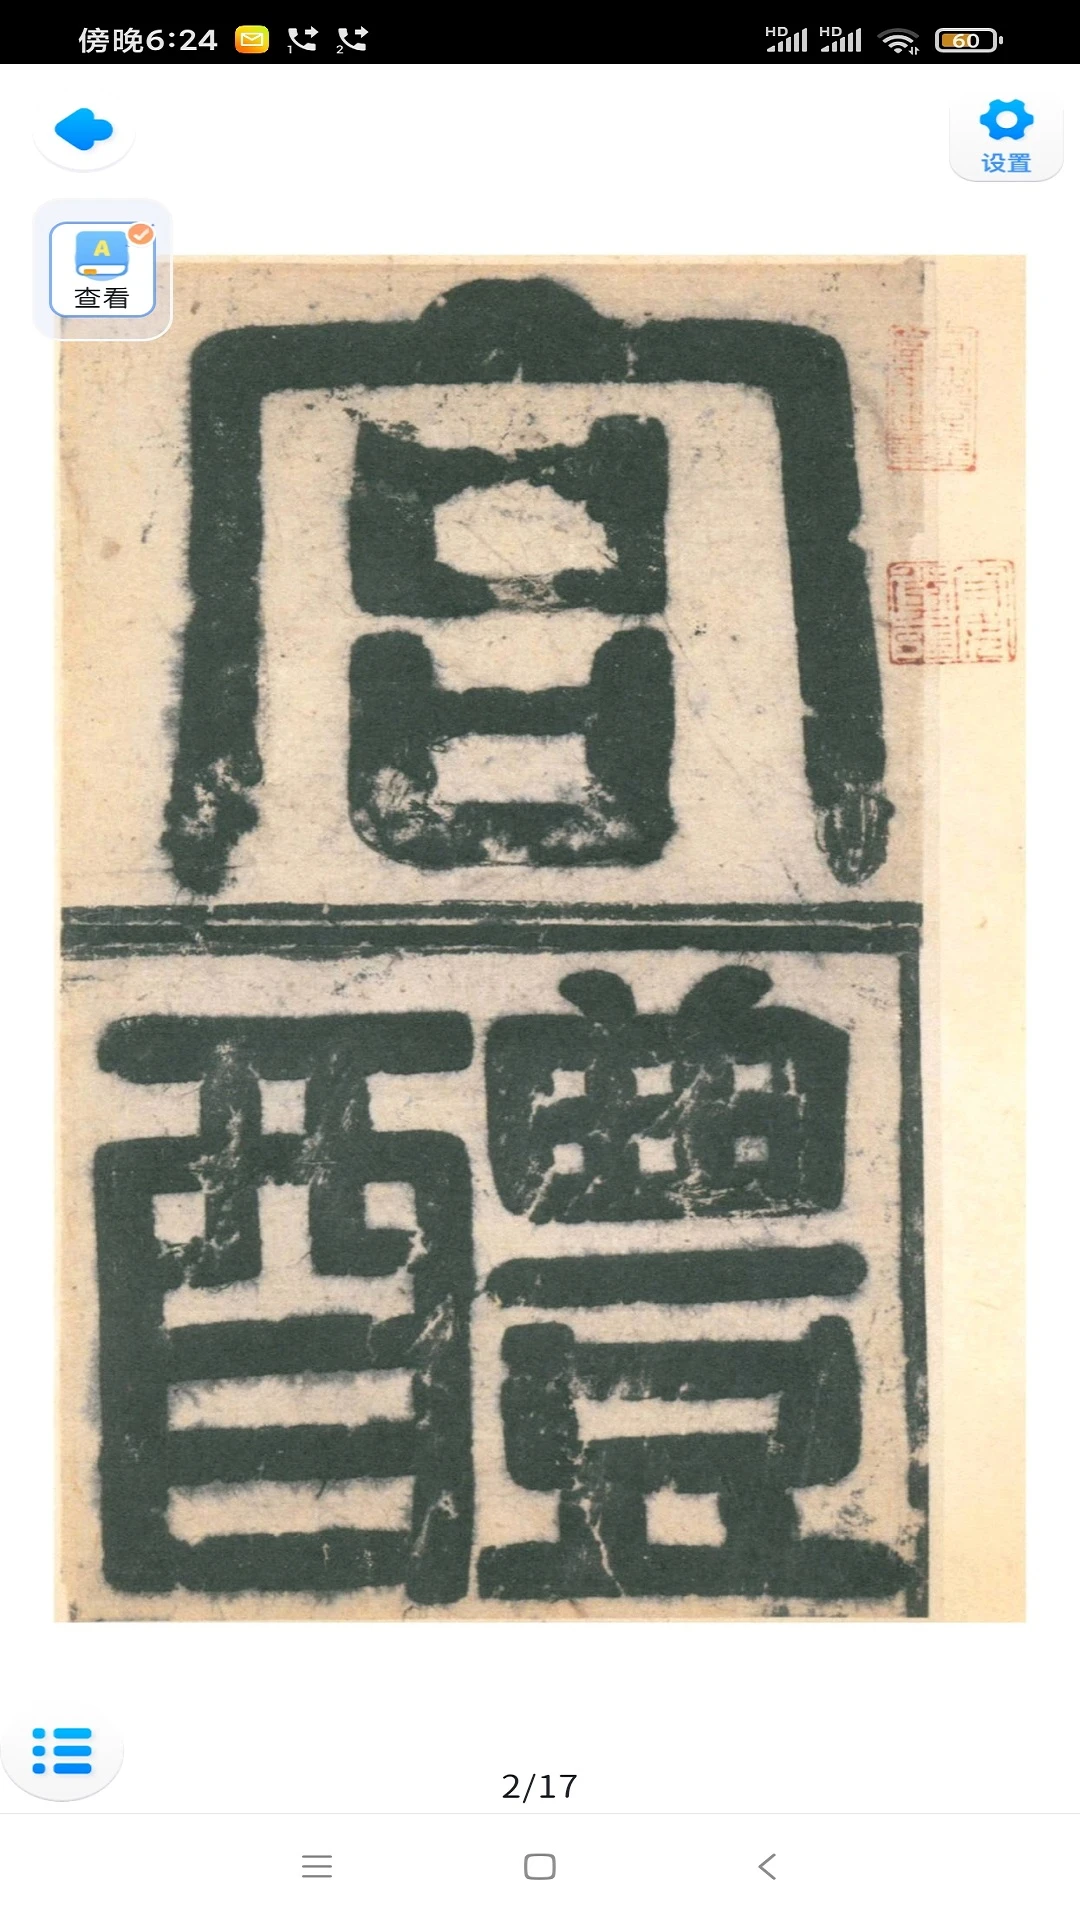 傍晚6:24
HD HD 60
设置
A
查看
宫
醴
2/17